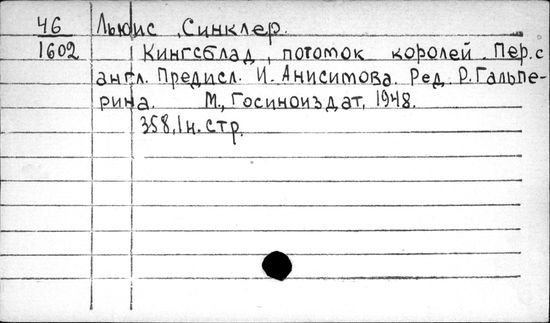 46 Льюис, Синклер.
1602 Кингсблад, потомок королей. Пер. с
англ. Предисл. И. Анисимова. Ред. Р. Гальпе-
рина. М., Госиноиздат, 1948.
358, 1 н. стр.